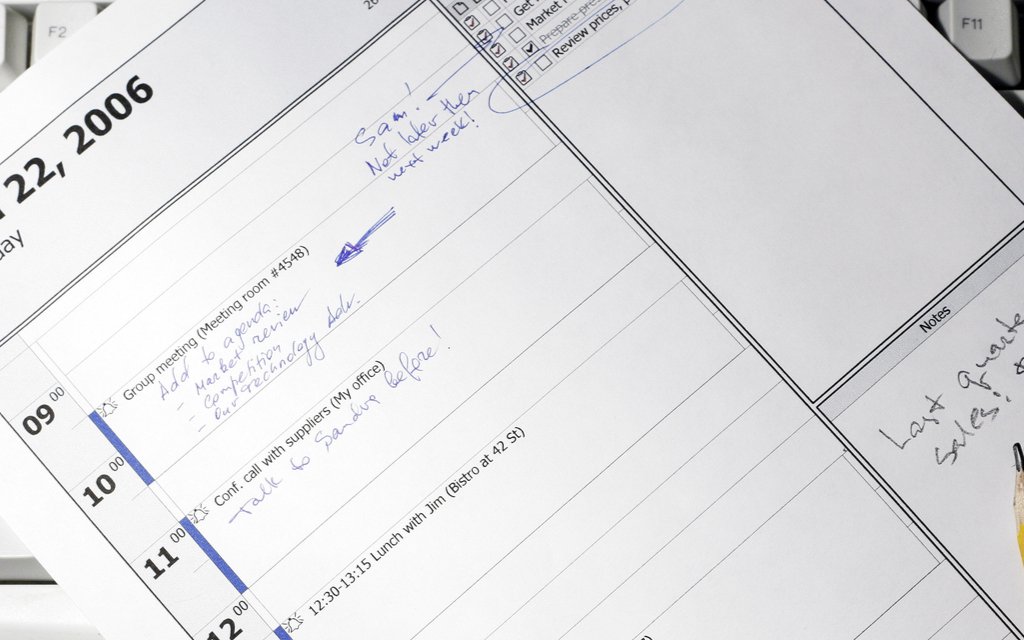 F2
F11
22, 2006
day
20
Get
Market
Prepare pres
Review prices, p
Sam!
Not later then
next week!
09 00
Group meeting (Meeting room #4548)
Add to agenda:
- Market review
- Competition
- Our technology Adv.
10 00
Conf. call with suppliers (My office)
Talk to Sandra before!
11 00
12:30-13:15 Lunch with Jim (Bistro at 42 St)
12 00
Notes
Last quarte
sales!